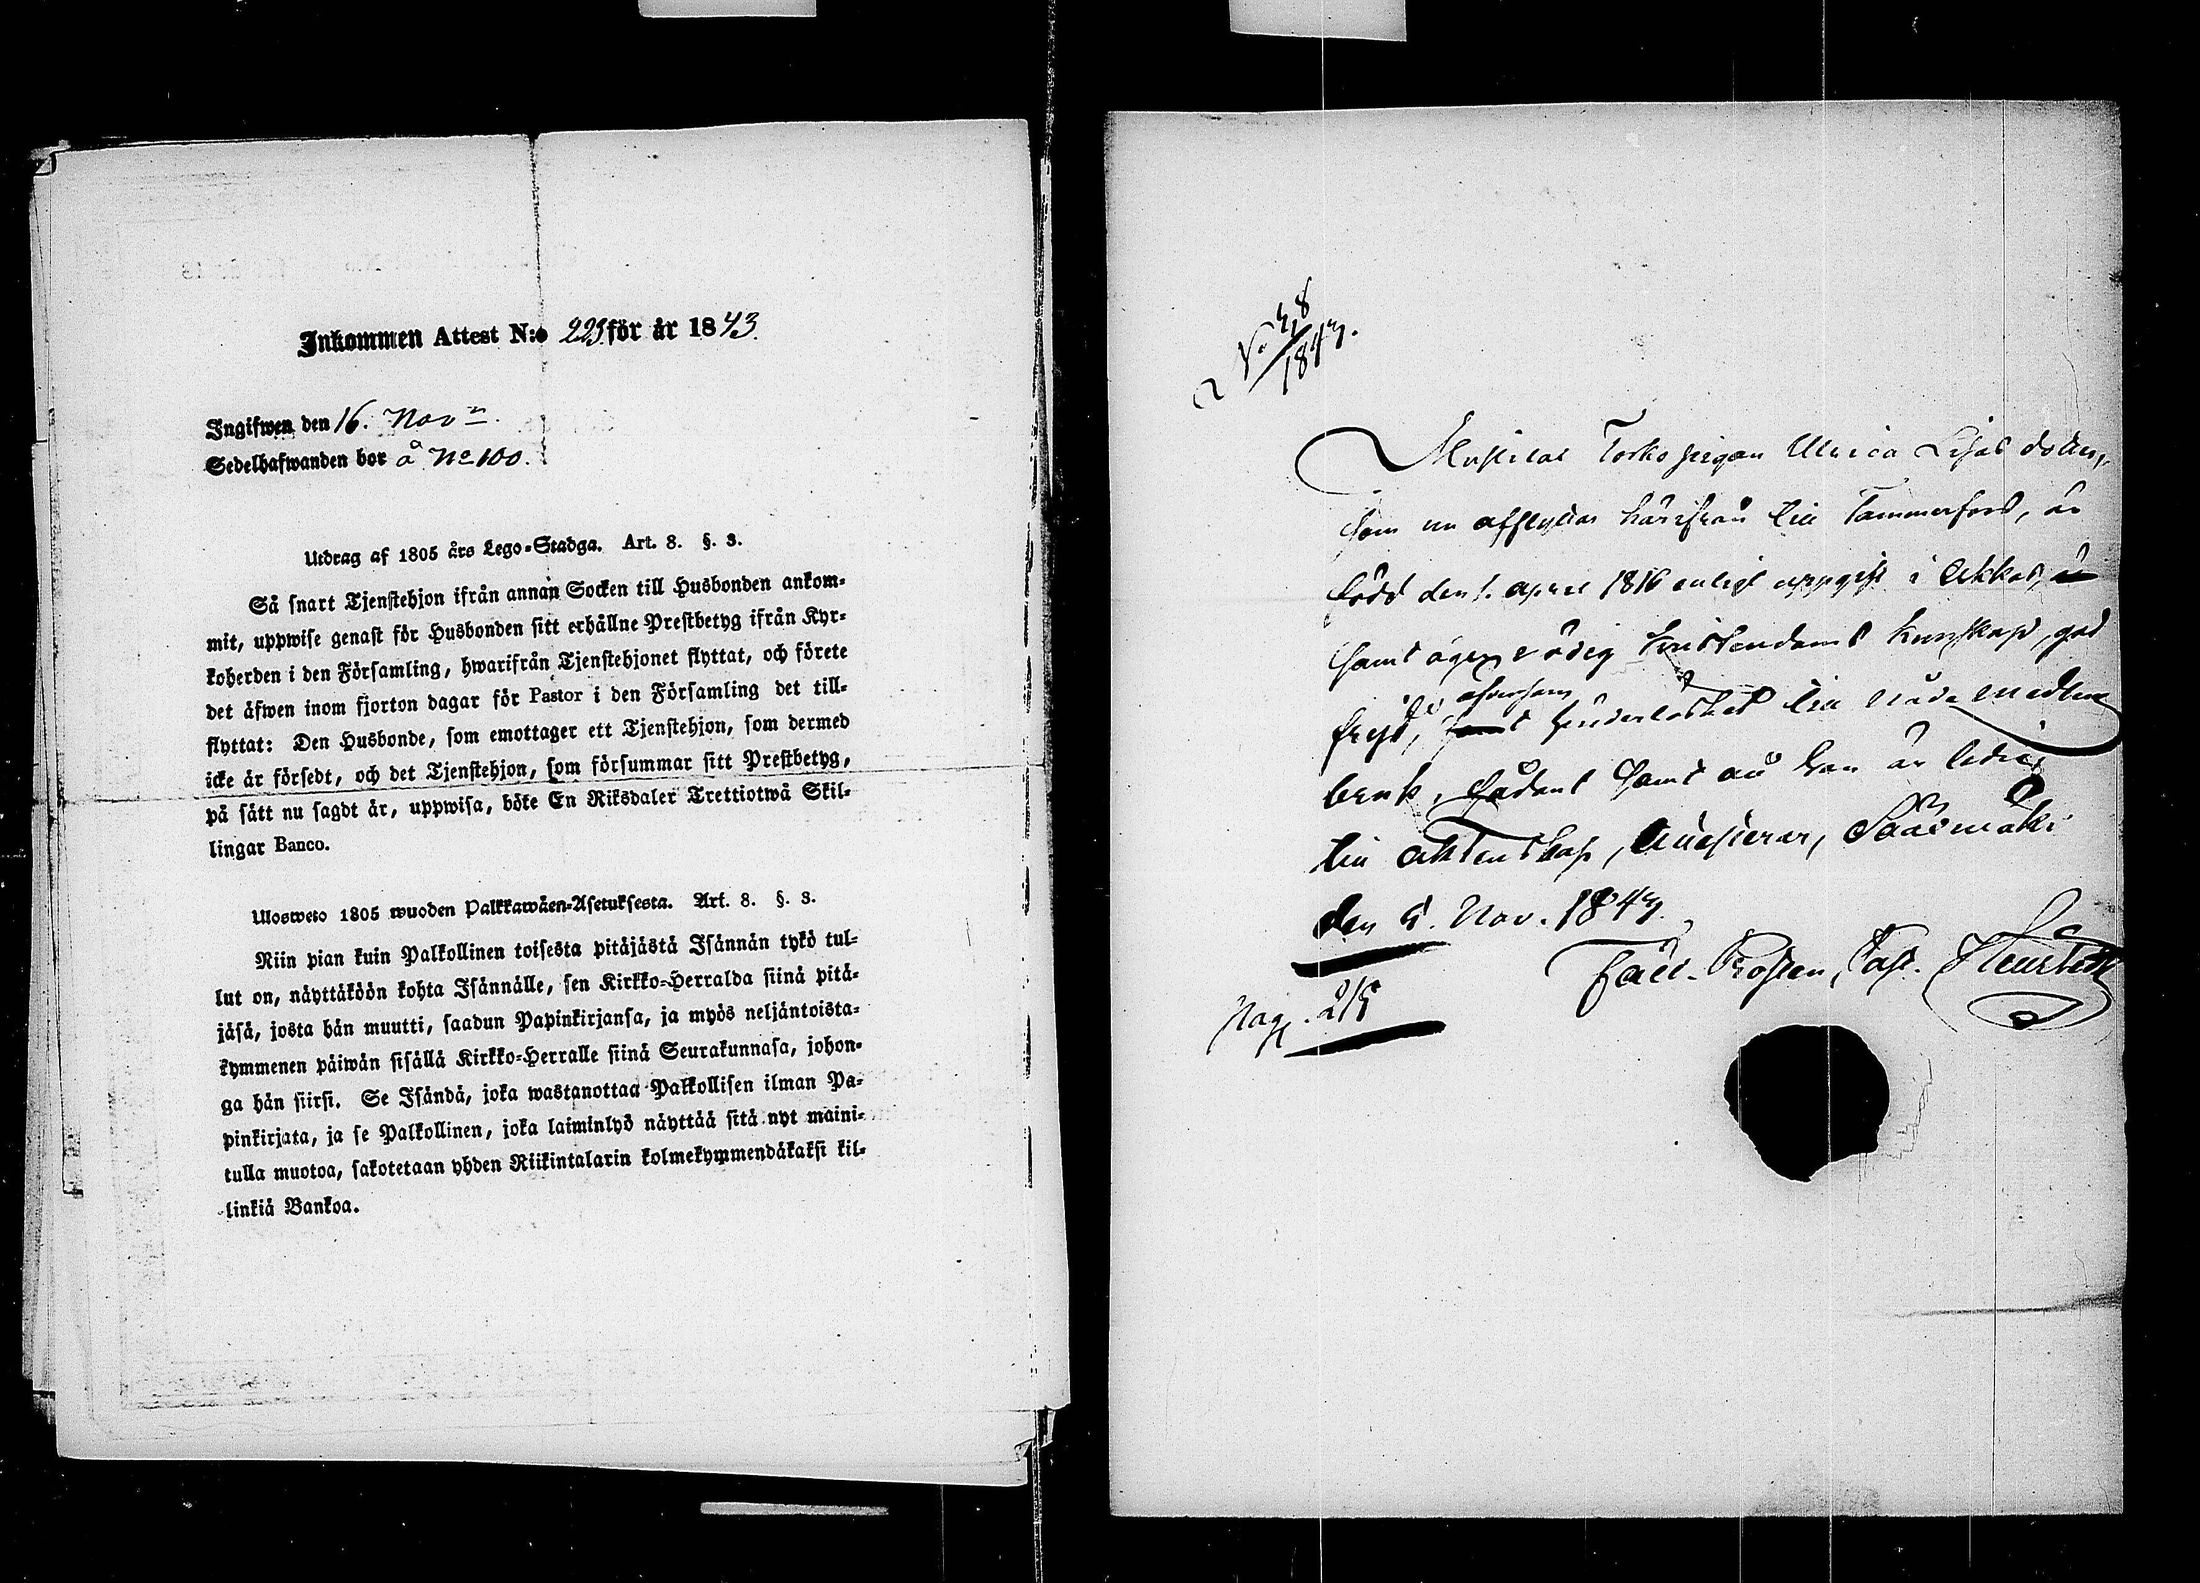 Inkommen Attest N:o 225 för år 1843.
Ingifwen den 16. Nov
Sedelhafwanden bor å No 100.
Utdrag af 1805 års Lego-Stadga. Art. 8. §. 3.
Så snart Tjenstehjon ifrån annan Socken till Husbonden ankom-
mit, uppwise genast för Husbonden sitt erhållne Prestbetyg ifrån Kyr-
koherden i den Församling, hwarifrån Tjenstehjonet flyttat, och förete
det äfwen inom fjorton dagar för Pastor i den Församling det till-
flyttat: Den Husbonde, som emottager ett Tjenstehjon, som dermed
icke är försedt, och det Tjenstehjon, som försummar sitt Prestbetyg,
på sätt nu sagdt är, uppwisa, böte En Riksdaler Trettiotwå Skil-
lingar Banco.
Ulosweto 1805 wuoden Palkkawäen-Asetuksesta. Art. 8. §. 3.
Niin pian kuin Palkollinen toisesta pitäjästä Isännän tykö tul-
lut on, näyttäköön kohta Isännälle, sen Kirkko-Herralda siinä pitä-
jäsä, josta hän muutti, saadun Papinkirjansa, ja myös neljäntoista-
kymmenen päiwän sisällä Kirkko-Herralle siinä Seurakunnasa, johon-
ga hän siirsi. Se Isändä, joka wastanottaa Palkollisen ilman Pa-
pinkirjata, ja se Palkollinen, joka laiminlyö näyttää sitä nyt maini-
tulla muotoa, sakotetaan yhden Riikintalarin kolmekymmendäkaksi kil-
linkiä Bankoa.
Torko pigan Ulrica Lisas dotter,
som nu afflyttar härifrån till Tammerfors, är
född den 1. april 1816 enligt uppgift i Akkas,
samt äger nödig kristendoms kunskap, god
frejd, är admitterad till nådemedlens
bruk, sådant samt att hon är ledig
till äktenskap, attesterar, Sääksmäki
den 5. Nov. 1843.
Pag. 215